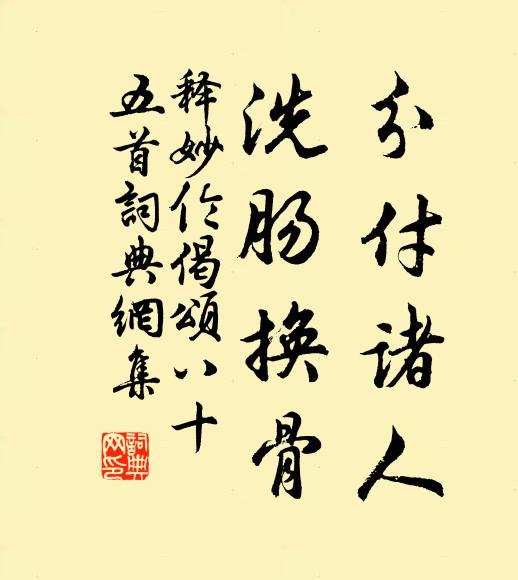 分付诸人
洗肠换骨
释妙伦偈颂八十
五首词典網集
詞典网印